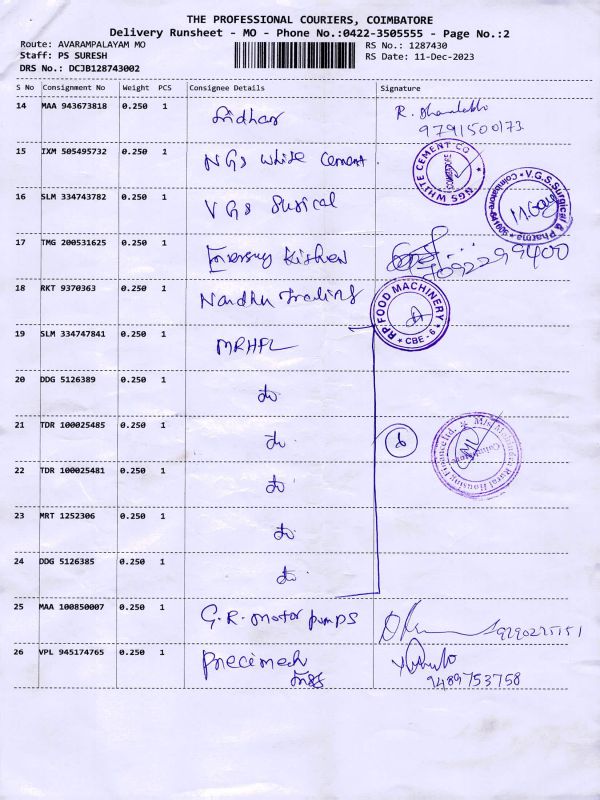 THE PROFESSIONAL COURIERS, COIMBATORE
Delivery Runsheet - MO - Phone No.:0422-3505555 - Page No.:2
Route: AVARAMPALAYAM MO
RS No.: 1287430
Staff: PS SURESH
RS Date: 11-Dec-2023
DRS No.: DCJB128743002
S No Consignment No Weight PCS Consignee Details Signature
14 MAA 943673818 0.250 1 Sridhar R.
9791500173
15 IXM 505495732 0.250 1 NGS White Cement.
NGS WHITE CEMENT CO
COIMBATORE
16 SLM 334743782 0.250 1 VGS Sugical
V.G.S. Surgical & Pharma
Coimbatore-641006
17 TMG 200531625 0.250 1 Kishen
9092299400
18 RKT 9370363 0.250 1 Nandhu Trading
RP FOOD MACHINERY
CBE - 6
19 SLM 334747841 0.250 1 MRHFL
20 DDG 5126389 0.250 1 do
21 TDR 100025485 0.250 1 do
6
M/s Mahindra Rural Housing Finance ltd.
Coimbatore
22 TDR 100025481 0.250 1 do
23 MRT 1252306 0.250 1 do
24 DDG 5126385 0.250 1 do
25 MAA 100850007 0.250 1 G.R. motor pumps
9290225151
26 VPL 945174765 0.250 1 Precimech
9489753758